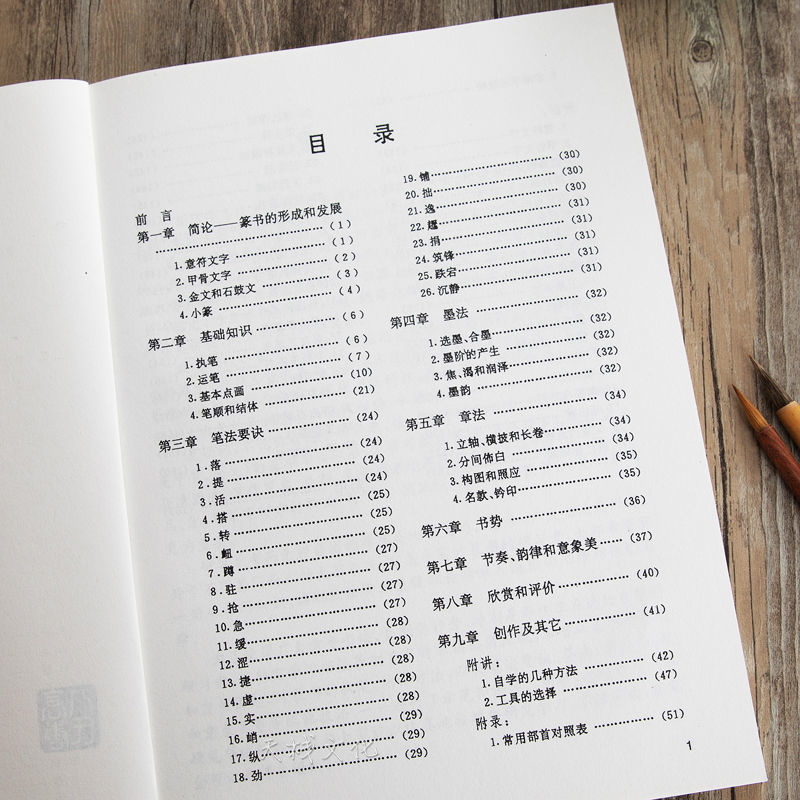 目 录
前 言
第一章 简论——篆书的形成和发展
……………………………(1)
1.意符文字……………(1)
2.甲骨文字……………(2)
3.金文和石鼓文…………(3)
4.小篆…………………(4)
第二章 基础知识…………(6)
1.执笔…………………(6)
2.运笔…………………(7)
3.基本点画……………(10)
4.笔顺和结体…………(21)
第三章 笔法要诀…………(24)
1.落……………………(24)
2.提……………………(24)
3.活……………………(24)
4.搭……………………(25)
5.转……………………(25)
6.衄……………………(25)
7.蹲……………………(27)
8.驻……………………(27)
9.抢……………………(27)
10.急……………………(27)
11.缓……………………(28)
12.涩……………………(28)
13.捷……………………(28)
14.虚……………………(28)
15.实……………………(28)
16.峭……………………(29)
17.纵……………………(29)
18.劲……………………(29)
19.铺……………………(30)
20.拙……………………(30)
21.逸……………………(30)
22.……………………(31)
23.捐……………………(31)
24.筑锋…………………(31)
25.跌宕…………………(31)
26.沉静…………………(31)
第四章 墨法………………(32)
1.选墨、合墨……………(32)
2.墨阶的产生…………(32)
3.焦、渴和润泽…………(32)
4.墨韵…………………(32)
第五章 章法………………(34)
1.立轴、横披和长卷……(34)
2.分间佈白……………(34)
3.构图和照应…………(35)
4.名款、钤印……………(35)
第六章 书势………………(36)
第七章 节奏、韵律和意象美……(37)
第八章 欣赏和评价…………(40)
第九章 创作及其它…………(41)
附讲：
1.自学的几种方法………(42)
2.工具的选择……………(47)
附录：
1.常用部首对照表………(51)
1
天猫文化